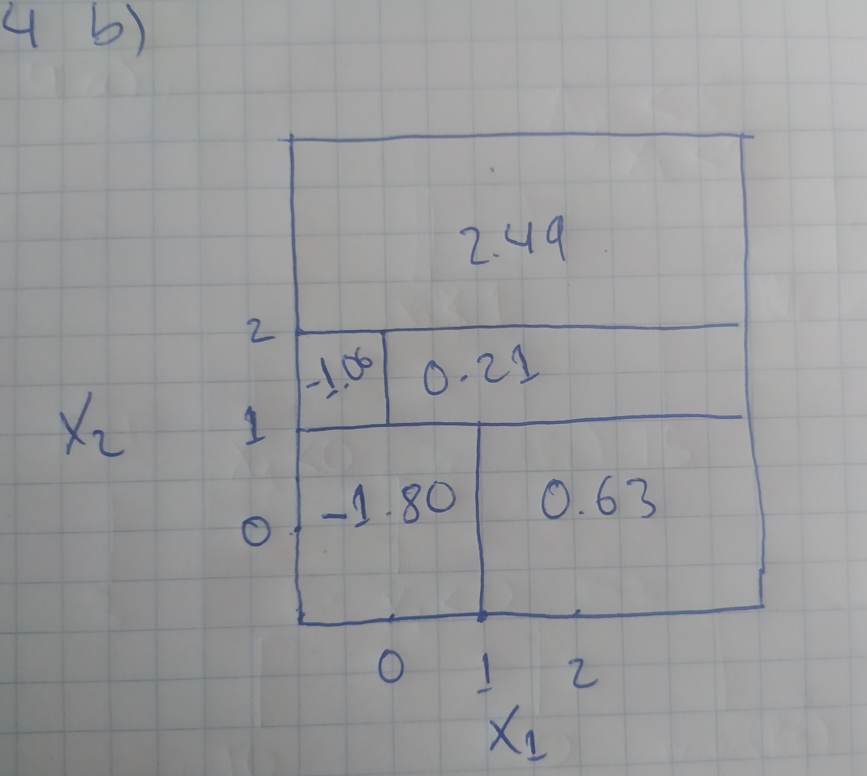 4 b)
2.49
2
-1.06 0.21
X2
1
-1.80 0.63
0
0 1 2
X1